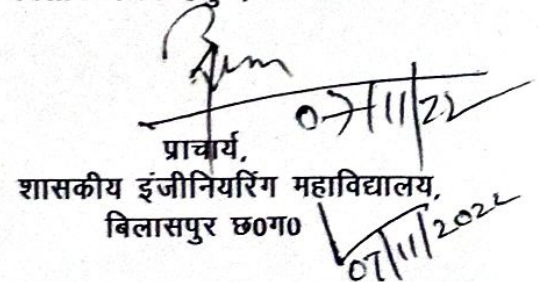 07/11/22
प्राचार्य,
शासकीय इंजीनियरिंग महाविद्यालय,
बिलासपुर छ0ग0
07/11/2022